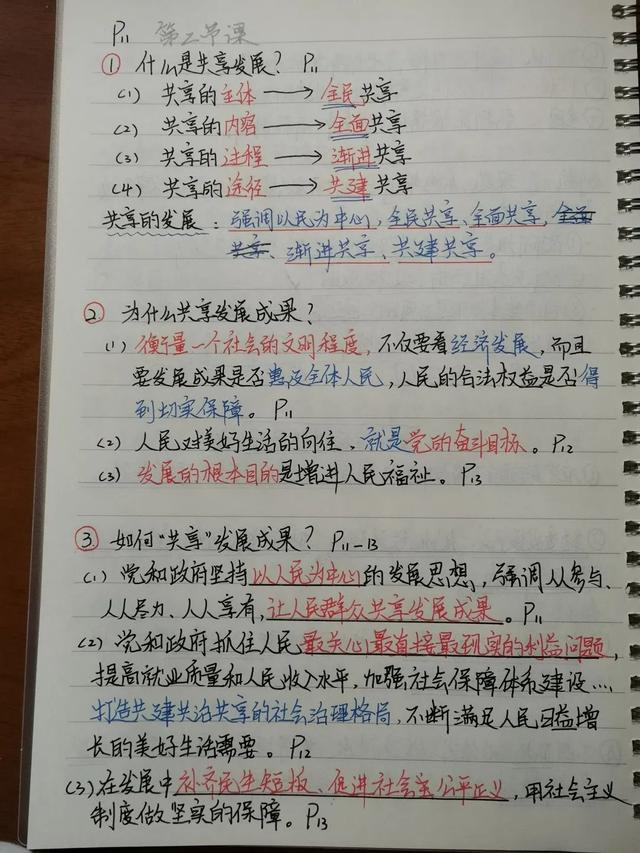 P11 第二节课
① 什么是共享发展？ P11
(1) 共享的主体 → 全民共享
(2) 共享的内容 → 全面共享
(3) 共享的过程 → 渐进共享
(4) 共享的途径 → 共建共享
共享的发展：强调以民为中心，全民共享、全面共享，全面
共享、渐进共享、共建共享。
② 为什么共享发展成果？
(1) 衡量一个社会的文明程度，不仅要看经济发展，而且
要发展成果是否惠及全体人民，人民的合法权益是否得
到切实保障。P11
(2) 人民对美好生活的向往，就是党的奋斗目标。P12
(3) 发展的根本目的是增进人民福祉。P13
③ 如何“共享”发展成果？ P11-13
(1) 党和政府坚持以人民为中心的发展思想，强调人参与、
人人尽力、人人享有，让人民群众共享发展成果。P11
(2) 党和政府抓住人民最关心最直接最现实的利益问题，
提高就业质量和人民收入水平，加强社会保障体系建设…，
打造共建共治共享的社会治理格局，不断满足人民日益增
长的美好生活需要。P12
(3) 在发展中补齐民生短板、促进社会公平正义，用社会主义
制度做坚实的保障。P13